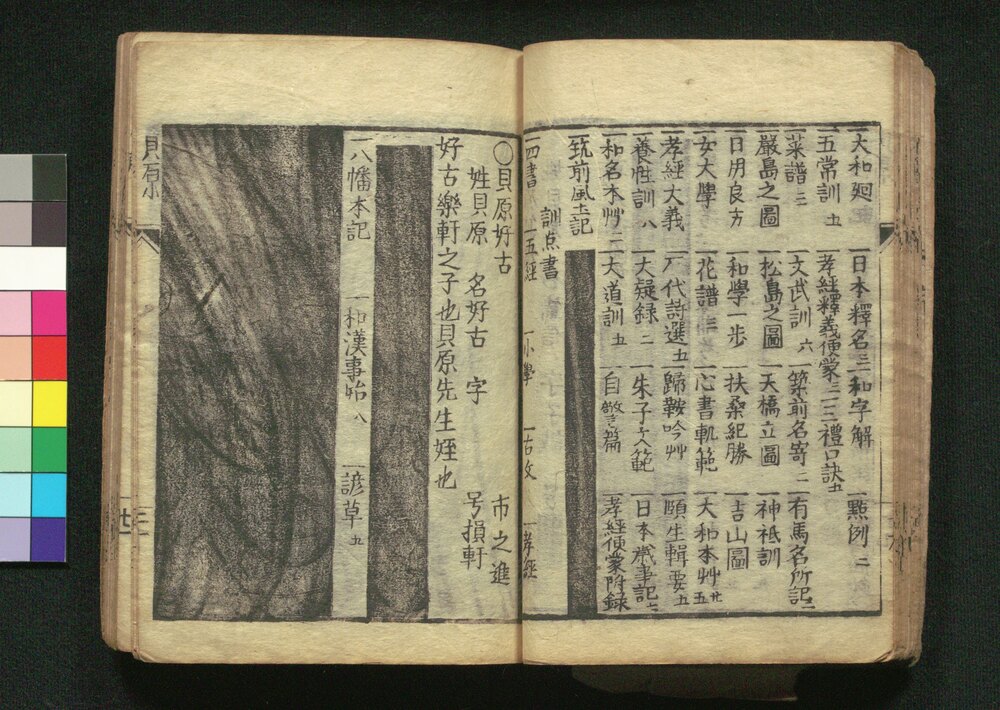 一大和廻 一日本釋名三 一和字解 一點例二
一五常訓五 一孝經釋義便蒙 一三禮口訣五
一菜譜三 一文武訓六 一築前名寄二 一有馬名所記
一嚴島之圖 一松島之圖 一天橋立圖 一神祇訓
一日用良方 一和學一步 一扶桑紀勝 一吉山圖
一女大學 一花譜三 一心書軌範 一大和本艸廿五
一孝經大義 一八代詩選五 一歸鞍吟艸 一頤生輯要五
一養性訓八 一大疑録二 一朱子文範 一日本歳事記七
一和名本艸二 一大道訓五 一自警篇 一孝經便蒙附録
一筑前風土記
訓点書
一四書 一五經 一小學 一古文 一孝經
〇貝原好古 市之進
姓貝原 名好古 字 号損軒
好古樂軒之子也貝原先生姪也
一八幡本記 一和漢事始八 一諺草五